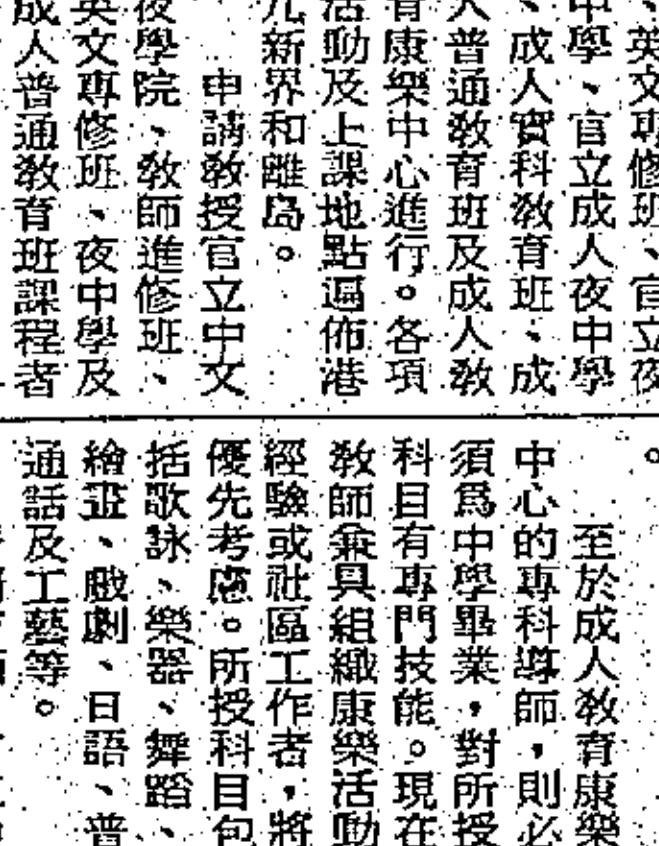 、英文專修班、官立夜
中學、官立成人夜中學
、成人實科教育班、成
人普通教育班及成人教
育康樂中心進行。各項
活動及上課地點遍佈港
九新界和離島。
申請教授官立中文
夜學院、教師進修班、
英文專修班、夜中學及
成人普通教育班課程者
。
至於成人教育康樂
中心的專科導師，則必
須爲中學畢業，對所授
科目有專門技能。現在
教師兼具組織康樂活動
經驗或社區工作者，將
優先考慮。所授科目包
括歌詠、樂器、舞蹈、
繪畫、戲劇、日語、普
通話及工藝等。